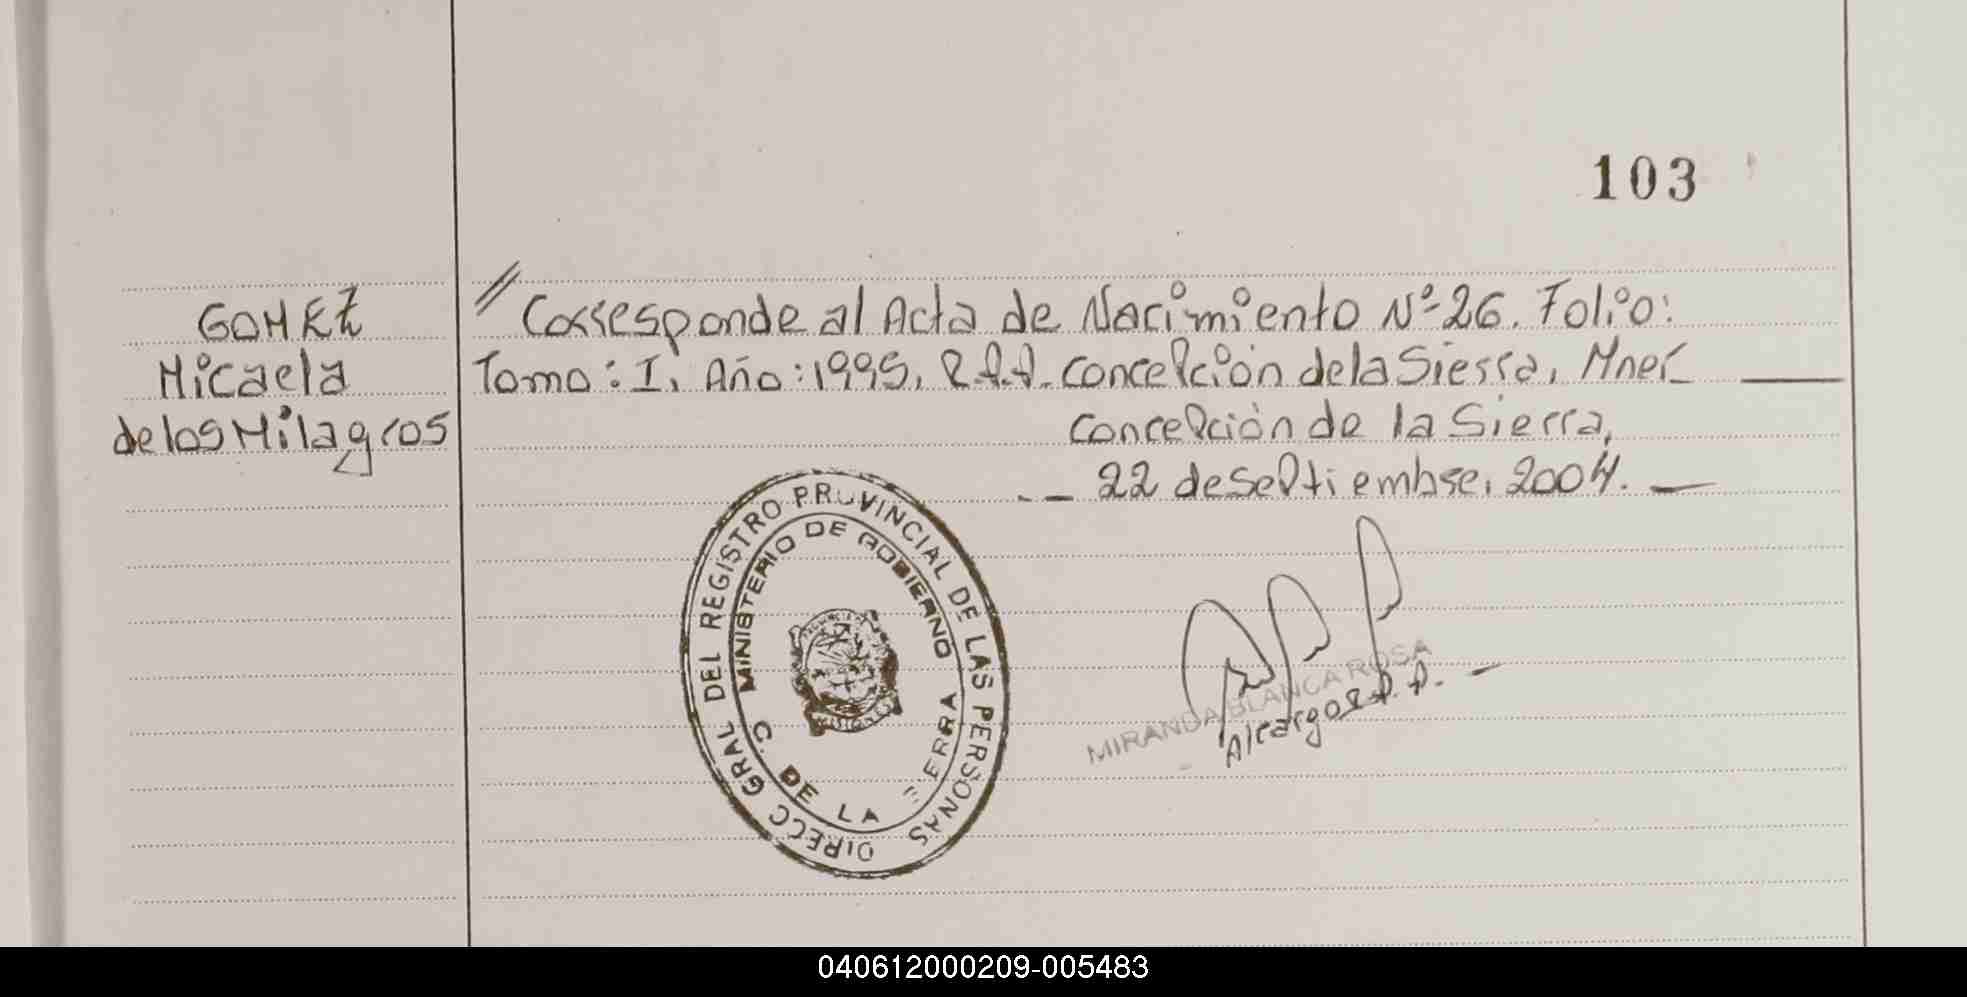 103
GOMEZ
Micaela
de los Milagros
// Corresponde al Acta de Nacimiento Nº 26. Folio:
Tomo: I, Año: 1995, R.P.P. Concepción de la Sierra, Mnes
Concepción de la Sierra,
-- 22 de Septiembre, 2004. —
DIRECC GRAL DEL REGISTRO PROVINCIAL DE LAS PERSONAS
MINISTERIO DE GOBIERNO
C. DE LA ERRA
MIRANDA BLANCA ROSA
A/cargo R.P.P. -
040612000209-005483